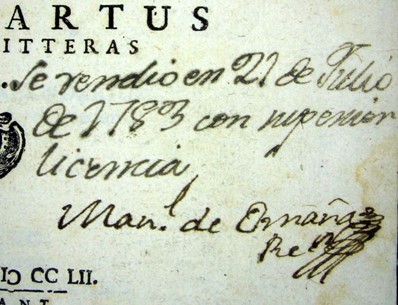 ARTUS
ITTERAS
Se vendio en 21 de Julio
de 1783 con superior
licencia
Man.l de Ornaña
Re
IↃ CC LII.
ANT